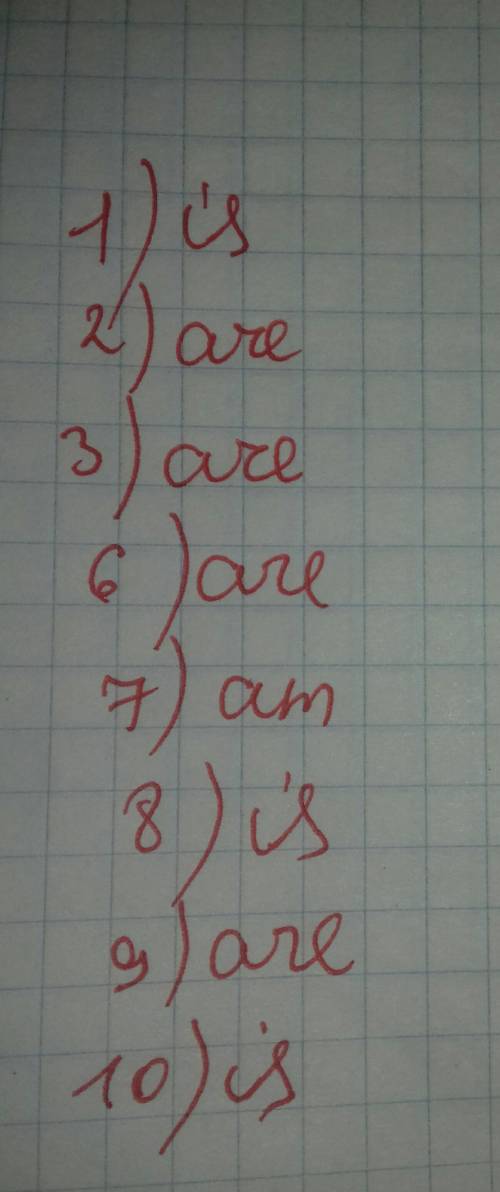 1) is
2) are
3) are
6) are
7) am
8) is
9) are
10) is